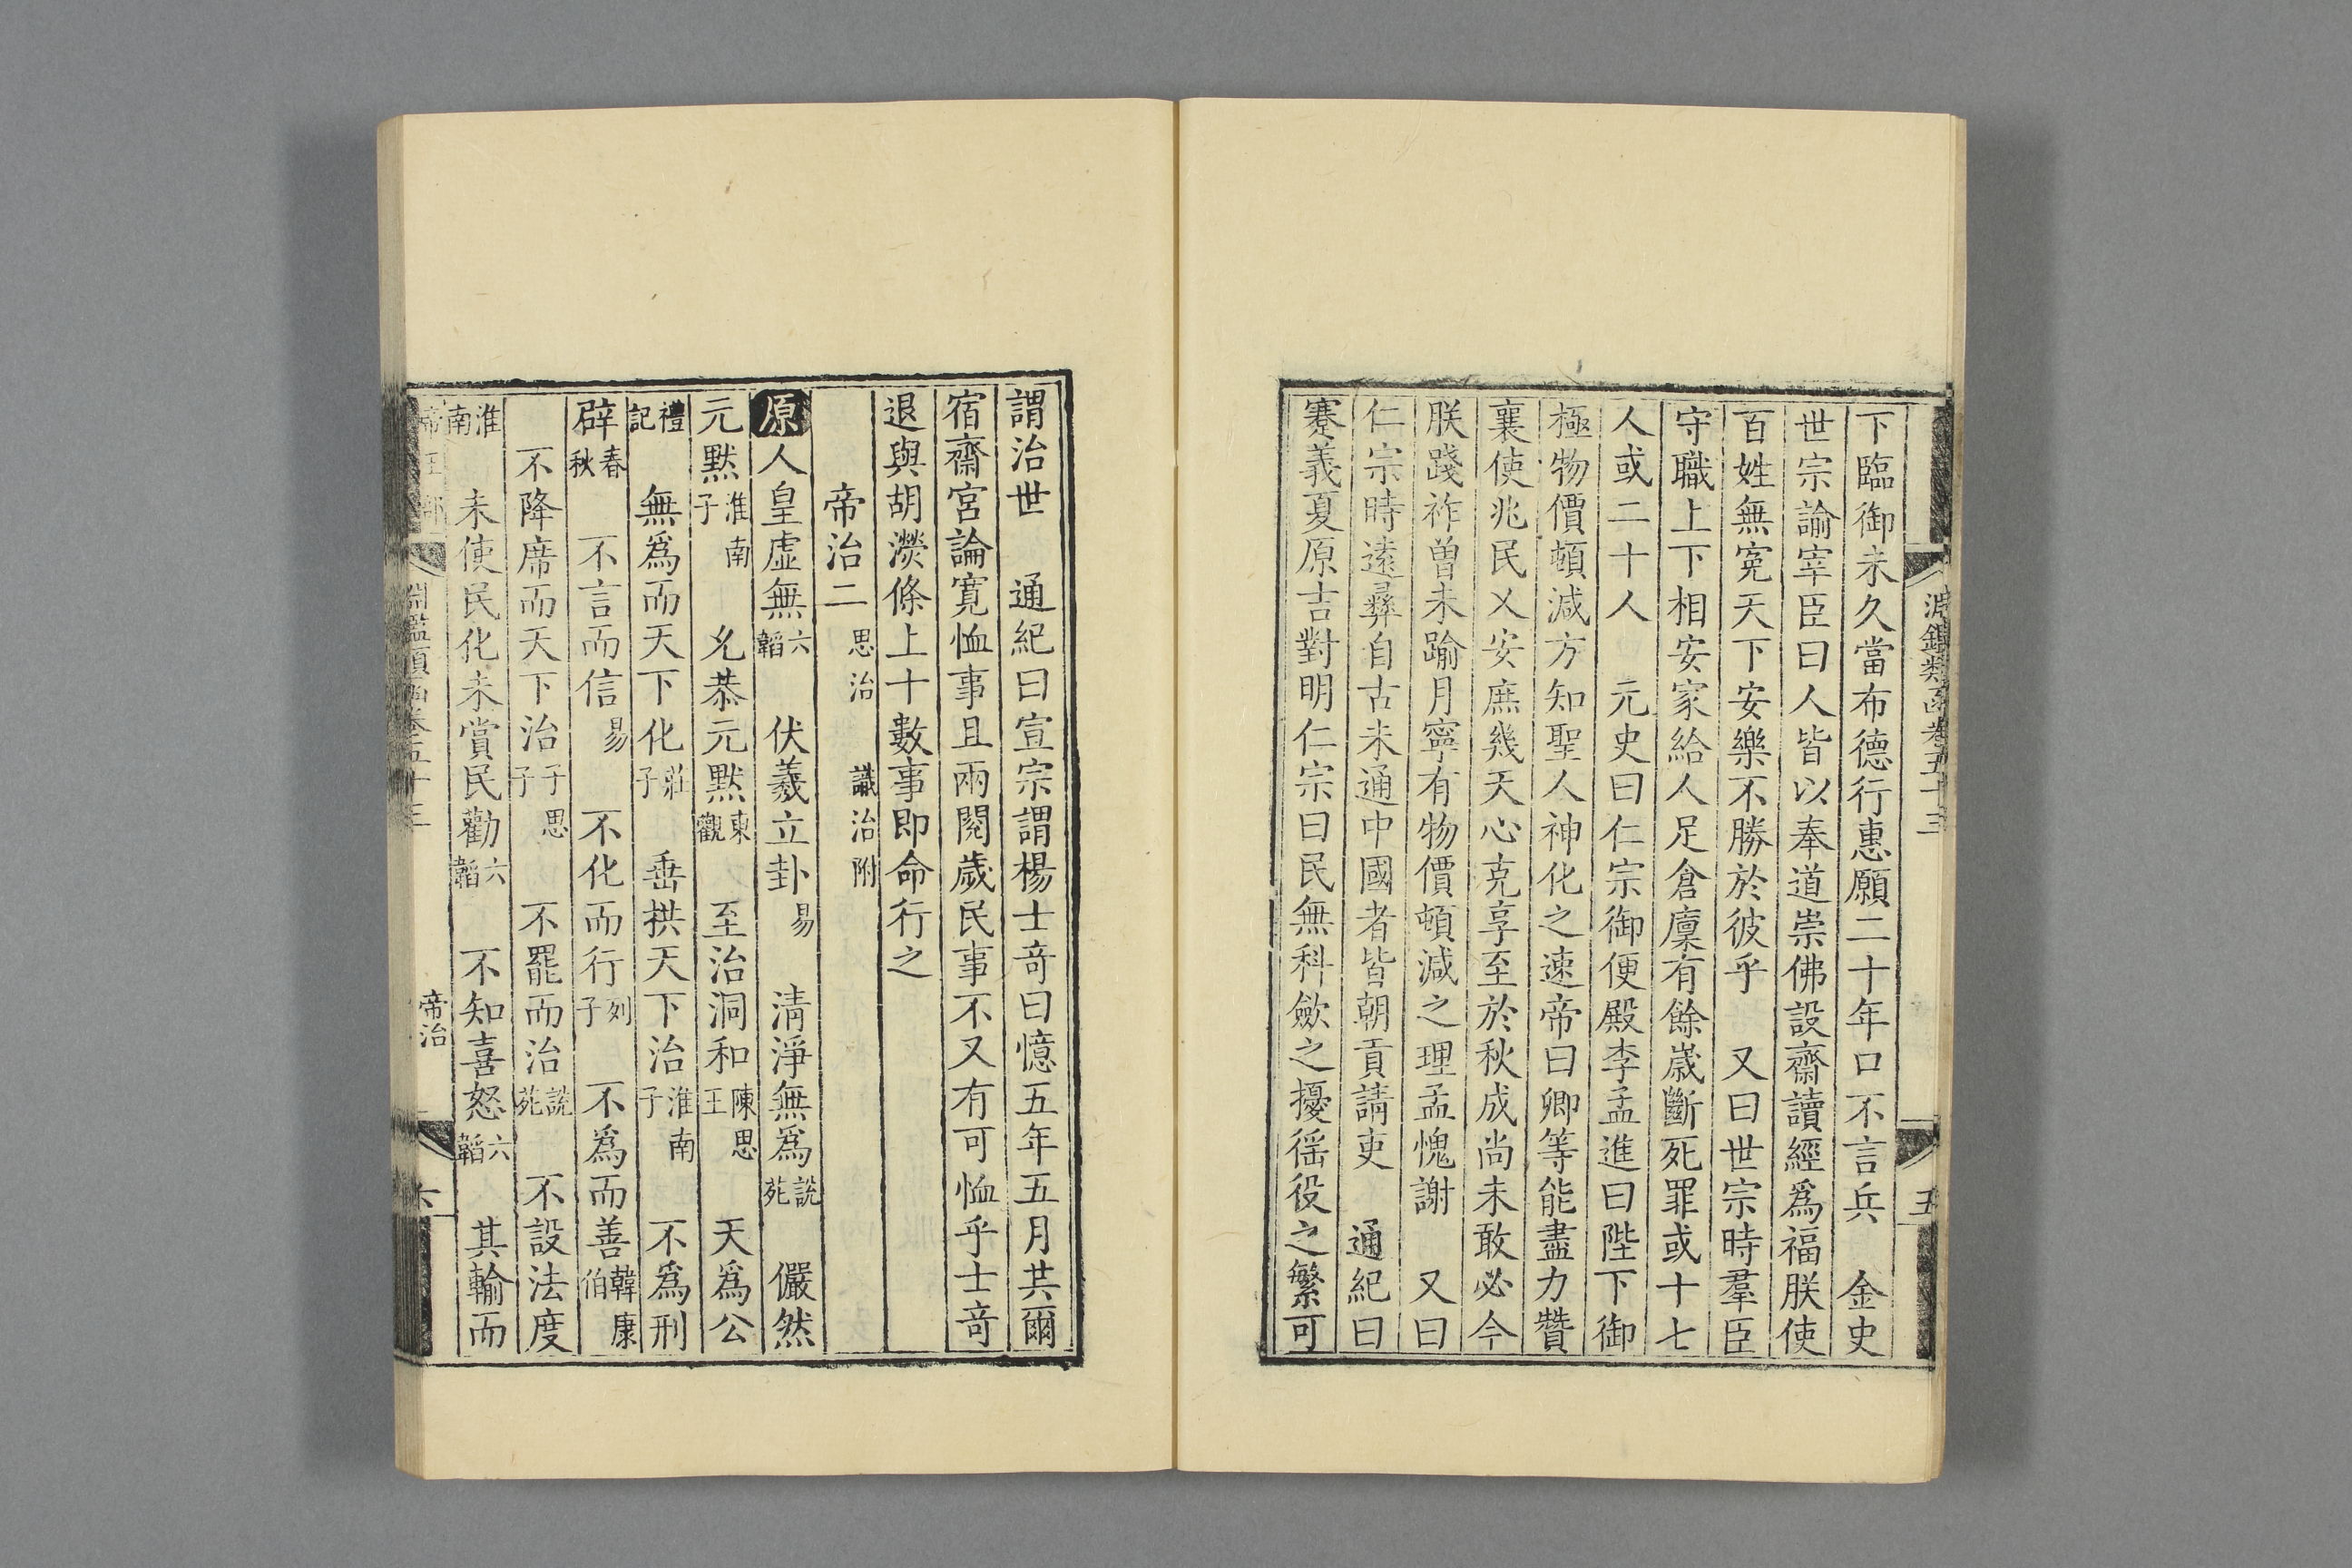 淵鑑類函卷五十三
五
下臨御未久當布德行惠願二十年口不言兵　金史
世宗諭宰臣曰人皆以奉道崇佛設齋讀經爲福朕使
百姓無寃天下安樂不勝於彼乎　又曰世宗時羣臣
守職上下相安家給人足倉廩有餘歲斷死罪或十七
人或二十人　元史曰仁宗御便殿李孟進曰陛下御
極物價頓減方知聖人神化之速帝曰卿等能盡力贊
襄使兆民乂安庶幾天心克享至於秋成尚未敢必今
朕踐祚曾未踰月寧有物價頓減之理孟愧謝　又曰
仁宗時遠彞自古未通中國者皆朝貢請吏　通紀曰
蹇義夏原吉對明仁宗曰民無科歛之擾徭役之繁可
謂治世　通紀曰宣宗謂楊士奇曰憶五年五月共爾
宿齋宮論寛恤事且兩閱歲民事不又有可恤乎士奇
退與胡濙條上十數事即命行之
帝治二 思治　議治附
原人皇虛無 六韜　伏羲立卦 易　清淨無爲 說苑　儼然
元默 淮南子　允恭元默 東觀　至治洞和 陳思王　天爲公
禮記　無爲而天下化 莊子　垂拱天下治 淮南子　不爲刑
辟 春秋　不言而信 易　不化而行 列子　不爲而善 韓康伯
不降席而天下治 子思子　不罷而治 說苑　不設法度
淮南　未使民化未賞民勸 六韜　不知喜怒 六韜　其輸而
帝王部
淵鑑類函卷五十三
帝治
六